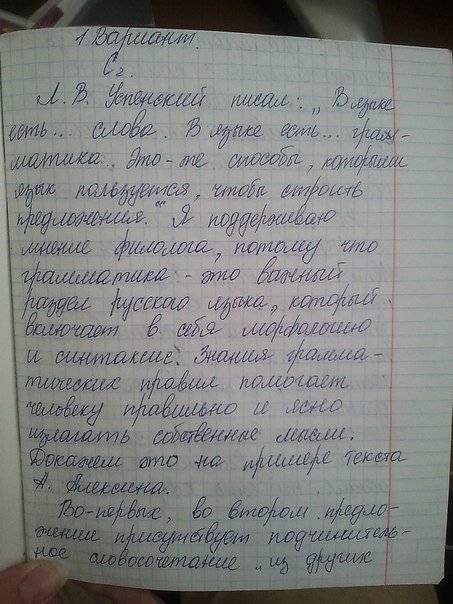 1 Вариант.
С2.
Л. В. Успенский писал: „В языке
есть... слова. В языке есть... грам-
матика. Это-те способы, которыми
язык пользуется, чтобы строить
предложения." Я поддерживаю
мнение филолога, потому что
грамматика - это важный
раздел русского языка, который
включает в себя морфологию
и синтаксис. Знания грамма-
тических правил помогает
человеку правильно и ясно
излагать собственные мысли.
Докажем это на примере текста
А. Алексина.
Во-первых, во втором предло-
жении присутствует подчинитель-
ное словосочетание „из других